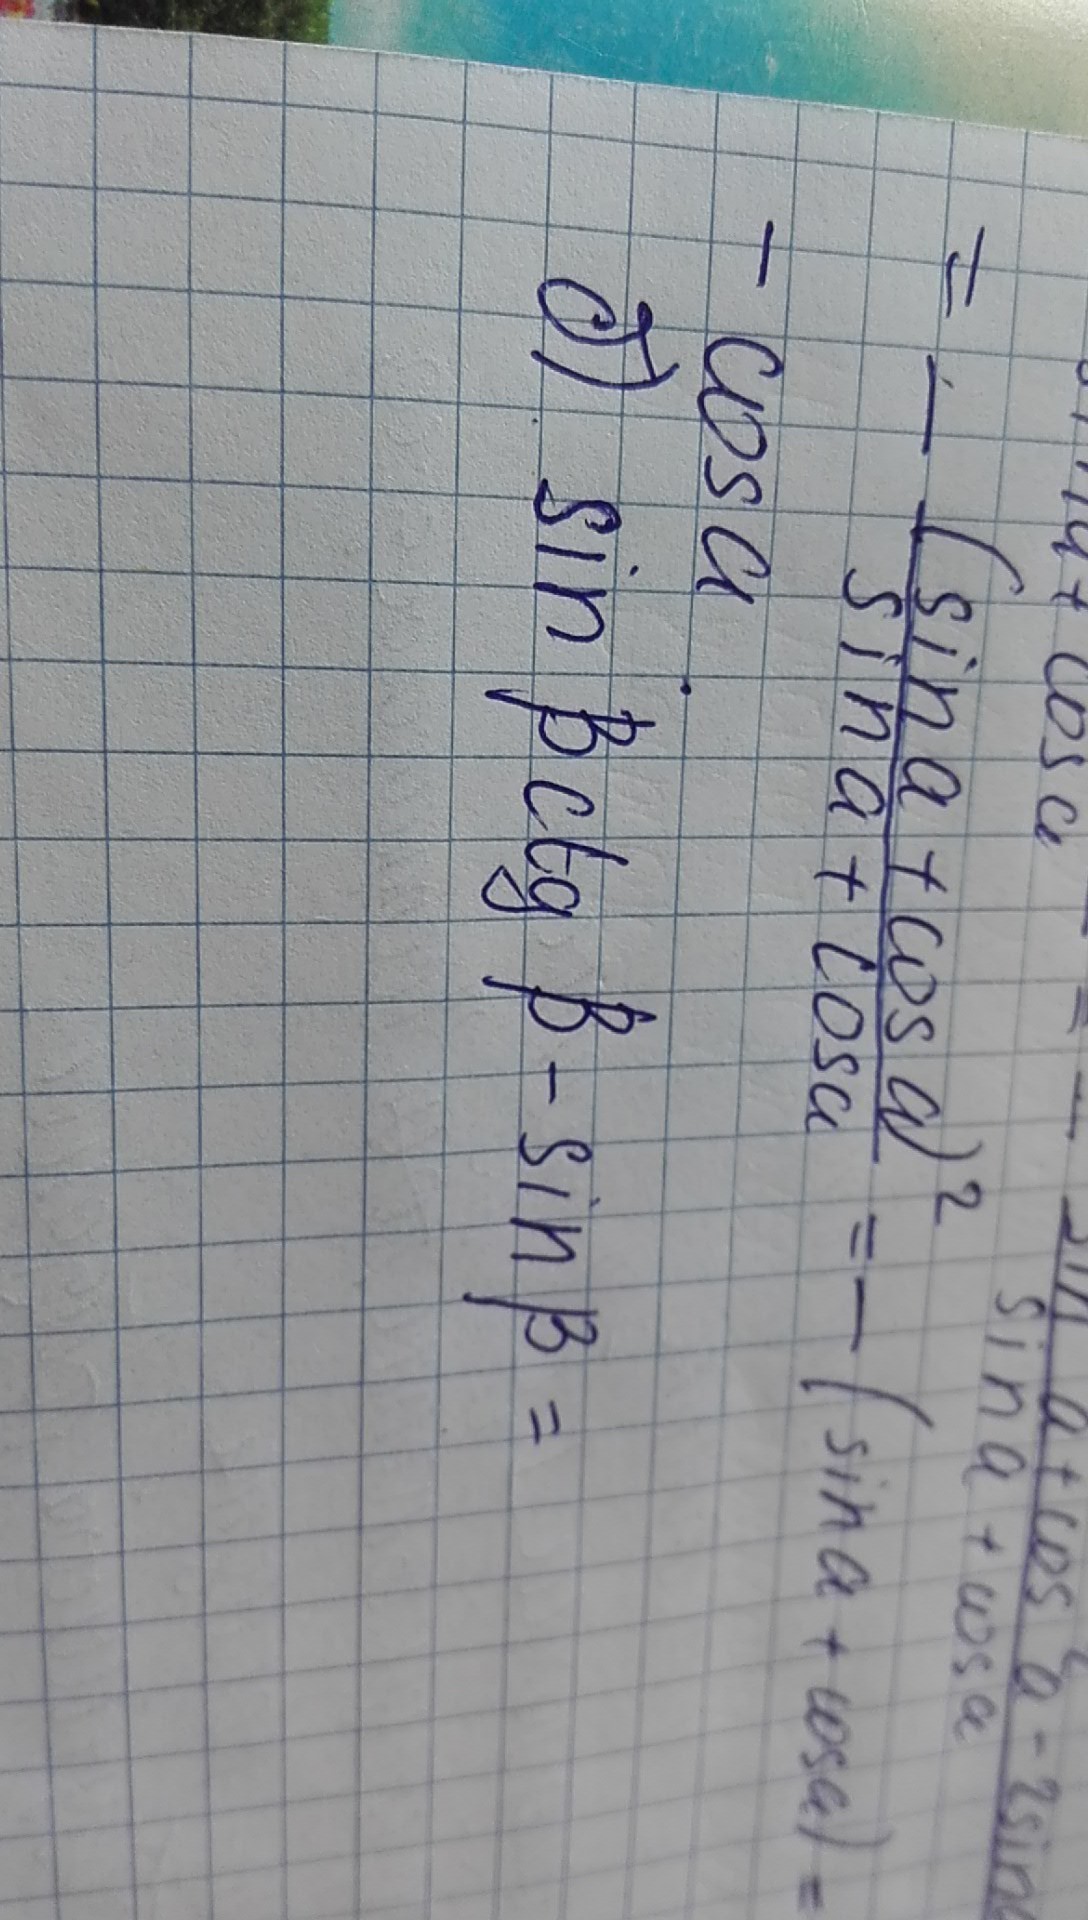 + cos a = - sin a + cos² a - 2 sin
sin a + cos a
= - (sin a + cos a)²
sin a + cos a = - (sin a + cos a) =
- cos a
б) sin β ctg β - sin β =